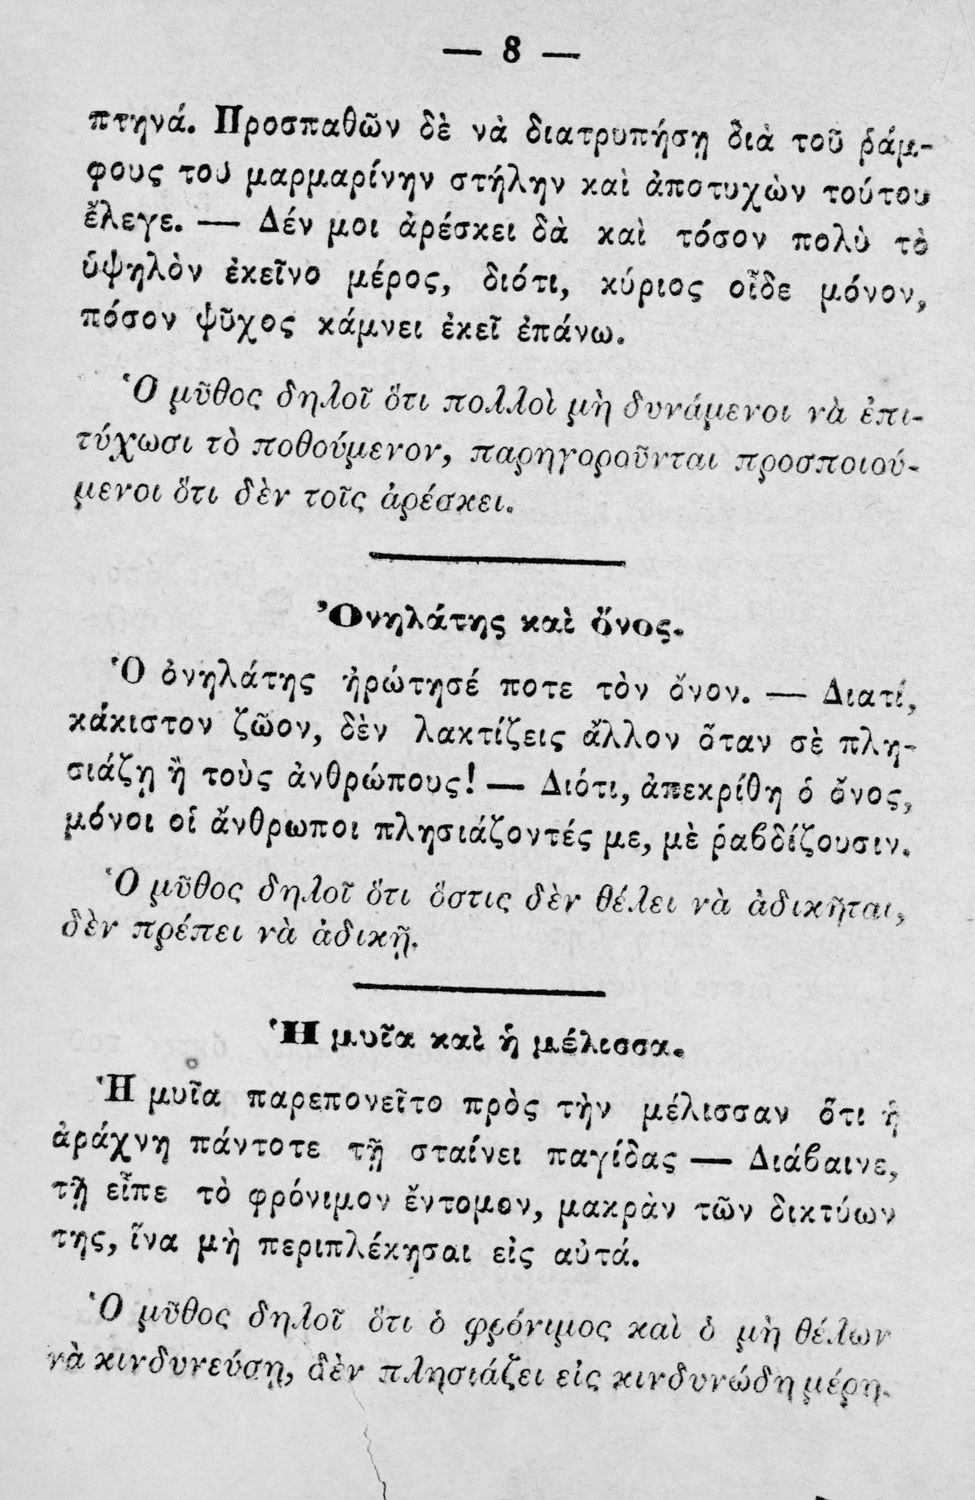 — 8 —
πτηνά. Προσπαθῶν δὲ νὰ διατρυπήσῃ διὰ τοῦ ῥάμ-
φους του μαρμαρίνην στήλην καὶ ἀποτυχὼν τούτου
ἔλεγε. — Δέν μοι ἀρέσκει δὰ καὶ τόσον πολὺ τὸ
ὑψηλὸν ἐκεῖνο μέρος, διότι, κύριος οἶδε μόνον,
πόσον ψῦχος κάμνει ἐκεῖ ἐπάνω.
Ὁ μῦθος δηλοῖ ὅτι πολλοὶ μὴ δυνάμενοι νὰ ἐπι-
τύχωσι τὸ ποθούμενον, παρηγοροῦνται προσποιού-
μενοι ὅτι δὲν τοῖς ἀρέσκει.
Ὀνηλάτης καὶ ὄνος.
Ὁ ὀνηλάτης ἠρώτησέ ποτε τὸν ὄνον. — Διατί,
κάκιστον ζῶον, δὲν λακτίζεις ἄλλον ὅταν σὲ πλη-
σιάζῃ ἢ τοὺς ἀνθρώπους! — Διότι, ἀπεκρίθη ὁ ὄνος,
μόνοι οἱ ἄνθρωποι πλησιάζοντές με, μὲ ῥαβδίζουσιν.
Ὁ μῦθος δηλοῖ ὅτι ὅστις δὲν θέλει νὰ ἀδικῆται,
δὲν πρέπει νὰ ἀδικῇ.
Ἡ μυῖα καὶ ἡ μέλισσα.
Ἡ μυῖα παρεπονεῖτο πρὸς τὴν μέλισσαν ὅτι ἡ
ἀράχνη πάντοτε τῇ σταίνει παγίδας — Διάβαινε,
τῇ εἶπε τὸ φρόνιμον ἔντομον, μακρὰν τῶν δικτύων
της, ἵνα μὴ περιπλέκησαι εἰς αὐτά.
Ὁ μῦθος δηλοῖ ὅτι ὁ φρόνιμος καὶ ὁ μὴ θέλων
νὰ κινδυνεύσῃ, δὲν πλησιάζει εἰς κινδυνώδη μέρη.